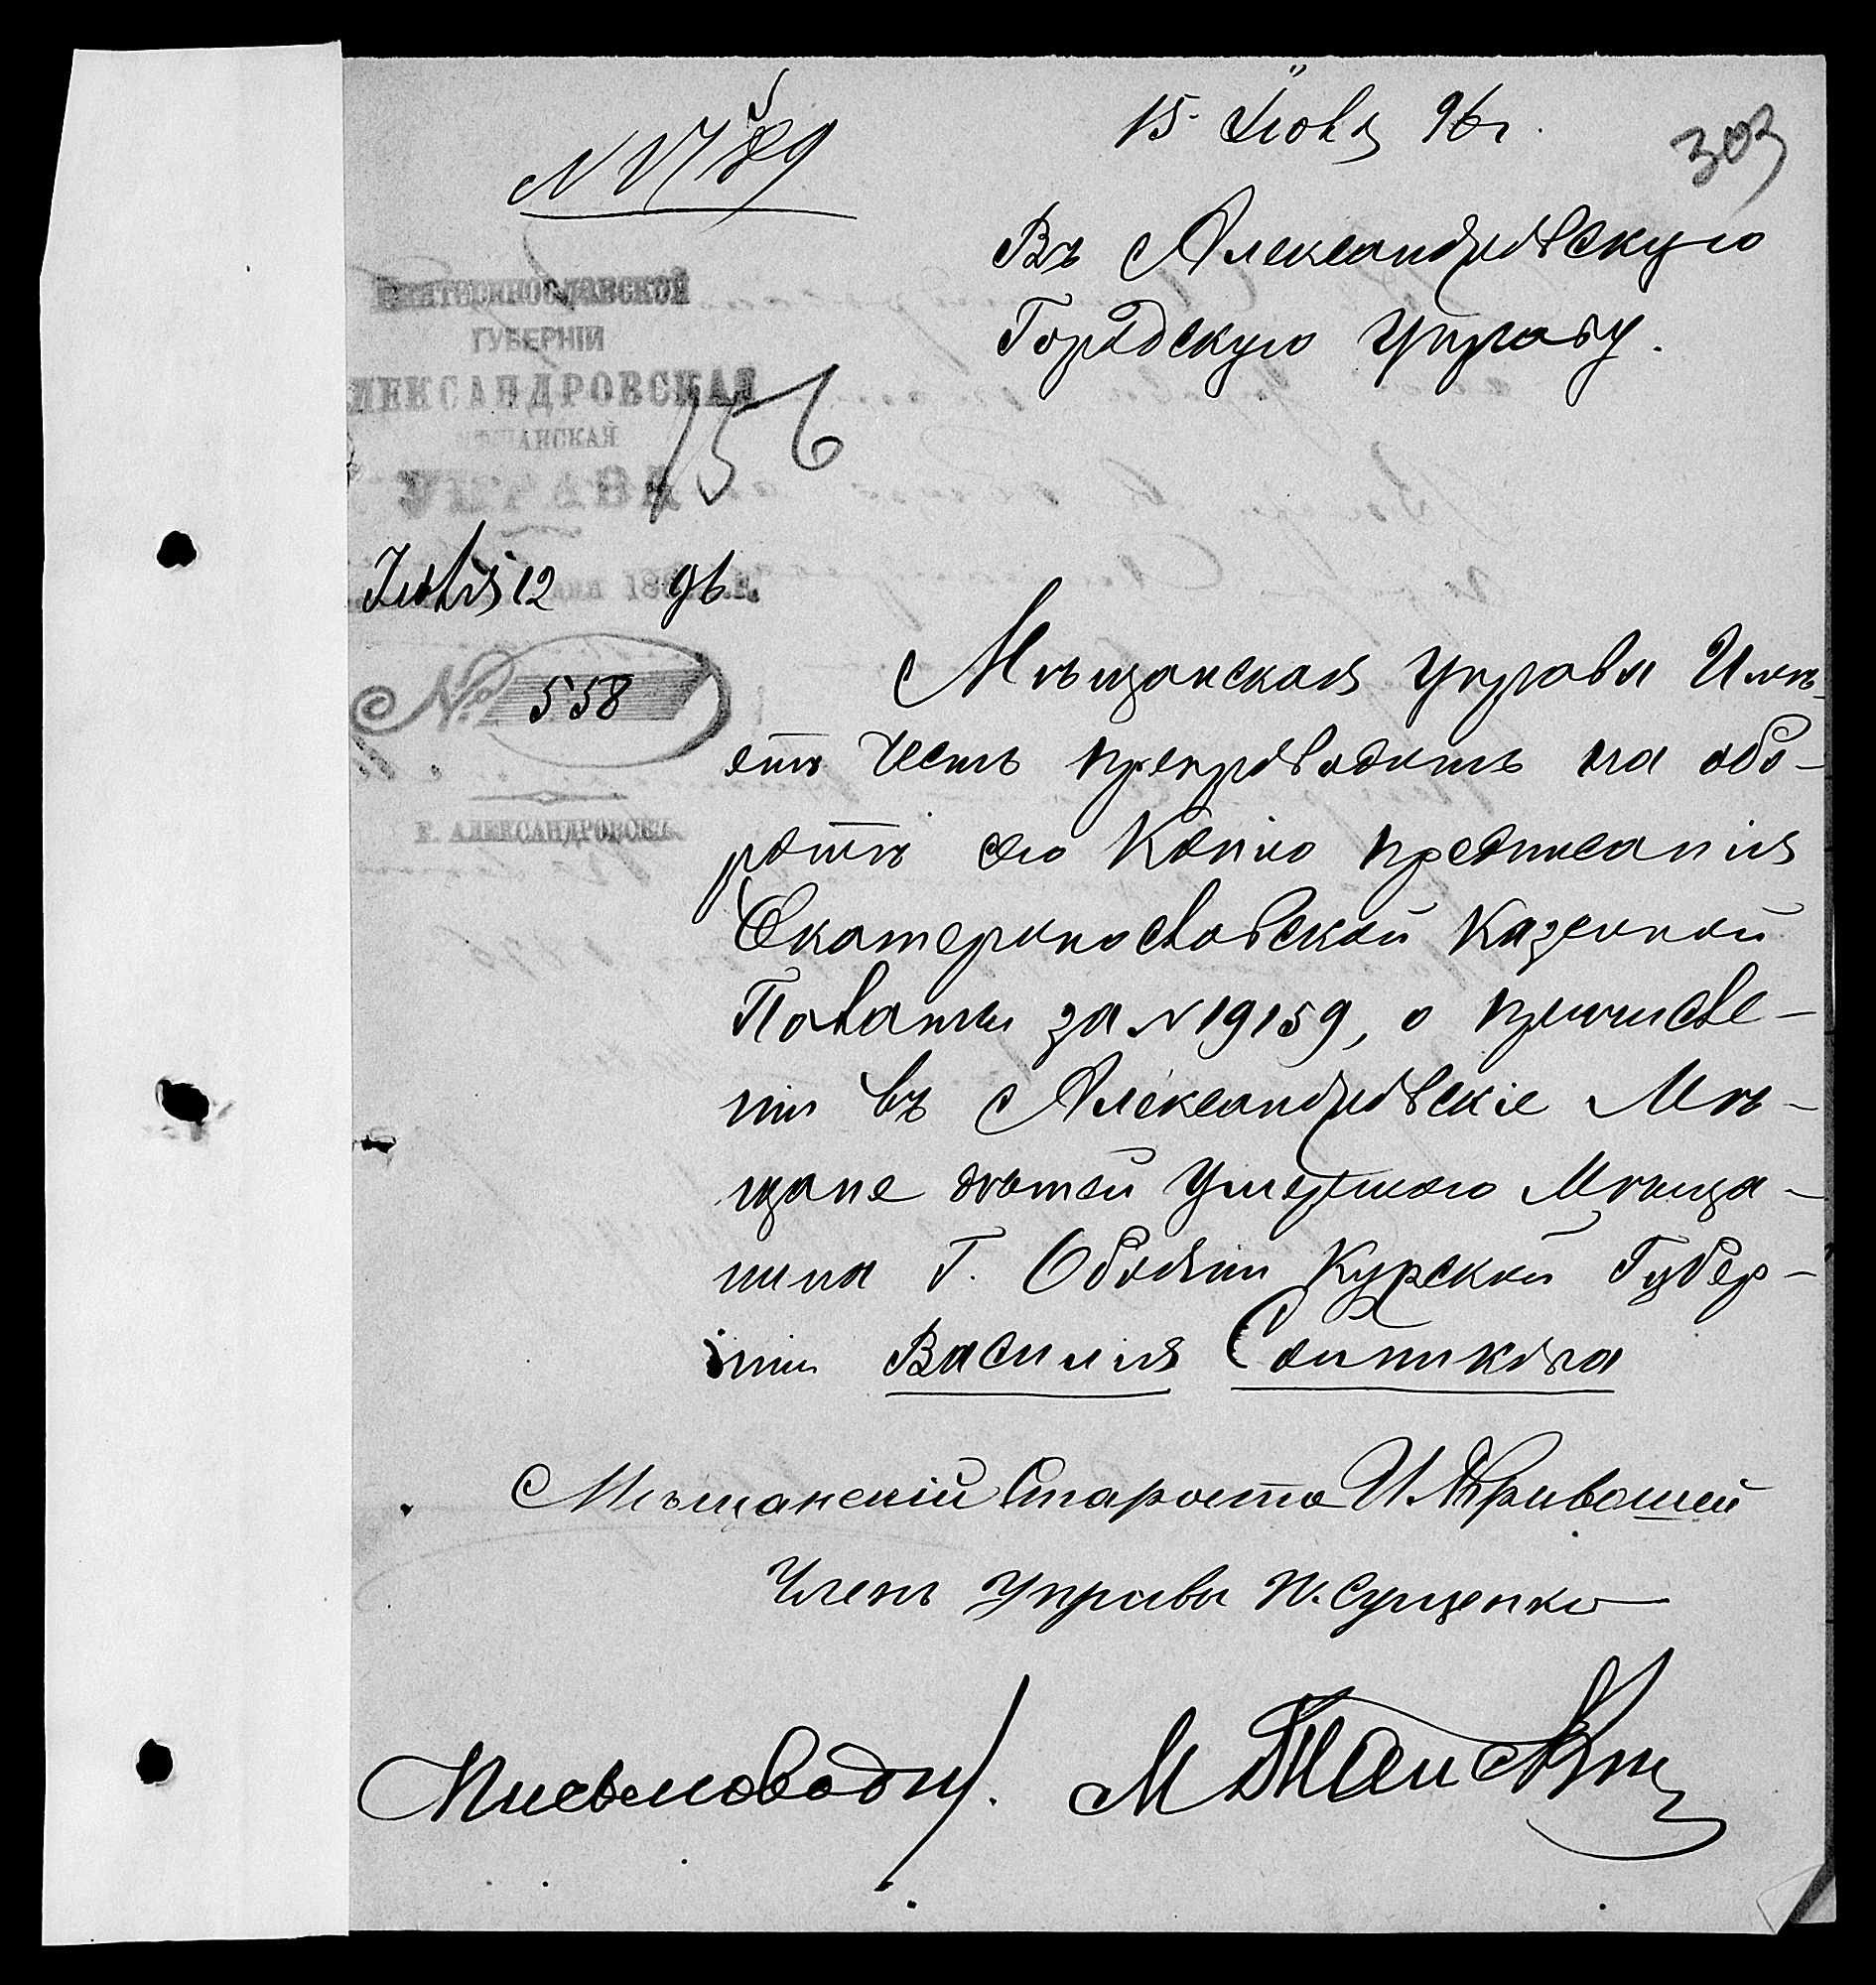 15 Июля 96 г.
303
Въ Александровскую
Городскую Управу.
ЕКАТЕРИНОСЛАВСКОЙ
ГУБЕРНІИ
АЛЕКСАНДРОВСКАЯ
МѢЩАНСКАЯ
УПРАВА
156
Іюля 12 дня 1896 г.
№ 558
Г. АЛЕКСАНДРОВСКЪ.
Мѣщанская Управа Имѣ-
етъ честь препроводить на обо-
ротѣ сего Копію предписанія
Екатеринославской Казенной
Палаты за № 19159, о причисле-
ніи въ Александровскіе Мѣ-
щане дѣтей Умершаго Мѣща-
нина Г. Обояни Курской Губер-
ніи Василія Сотникова
Мѣщанскій Староста И. Кривошей
Членъ Управы И. Сущенко
Письмовод.